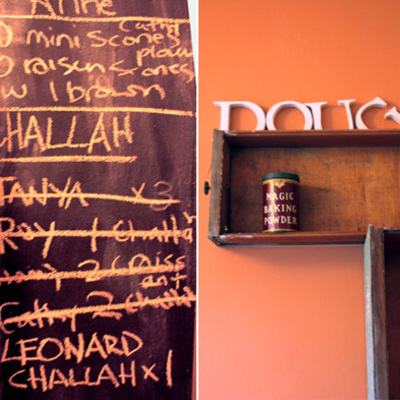 Anne
Cathy
0 mini scones
plain
0 raisin scones
w 1 brown
CHALLAH
TANYA x3
Roy 1 challa
2 (miss
an+
Cathy 2 challa
LEONARD
CHALLAH x 1
DOUG
MAGIC
BAKING
POWDER